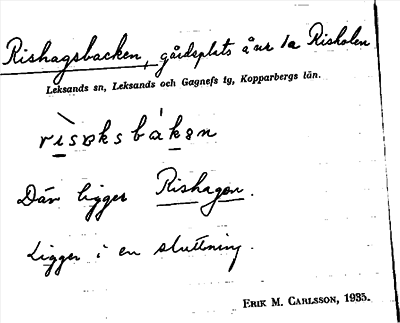 Rishagsbacken, gårdsplats å nr 1a Risholen
Leksands sn, Leksands och Gagnefs tg, Kopparbergs län.
Där ligger Rishagen.
Ligger i en sluttning.
ERIK M. CARLSSON, 1935.